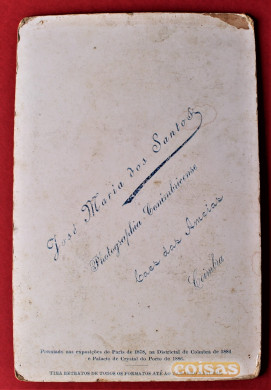 José Maria dos Santos
Photographia Conimbricense
Caes das Ameias
Coimbra
Premiado nas exposições de Paris de 1878, na Districtal de Coimbra de 1884
e Palacio de Crystal do Porto de 1886.
TIRA RETRATOS DE TODOS OS FORMATOS ATÉ AO
coisas